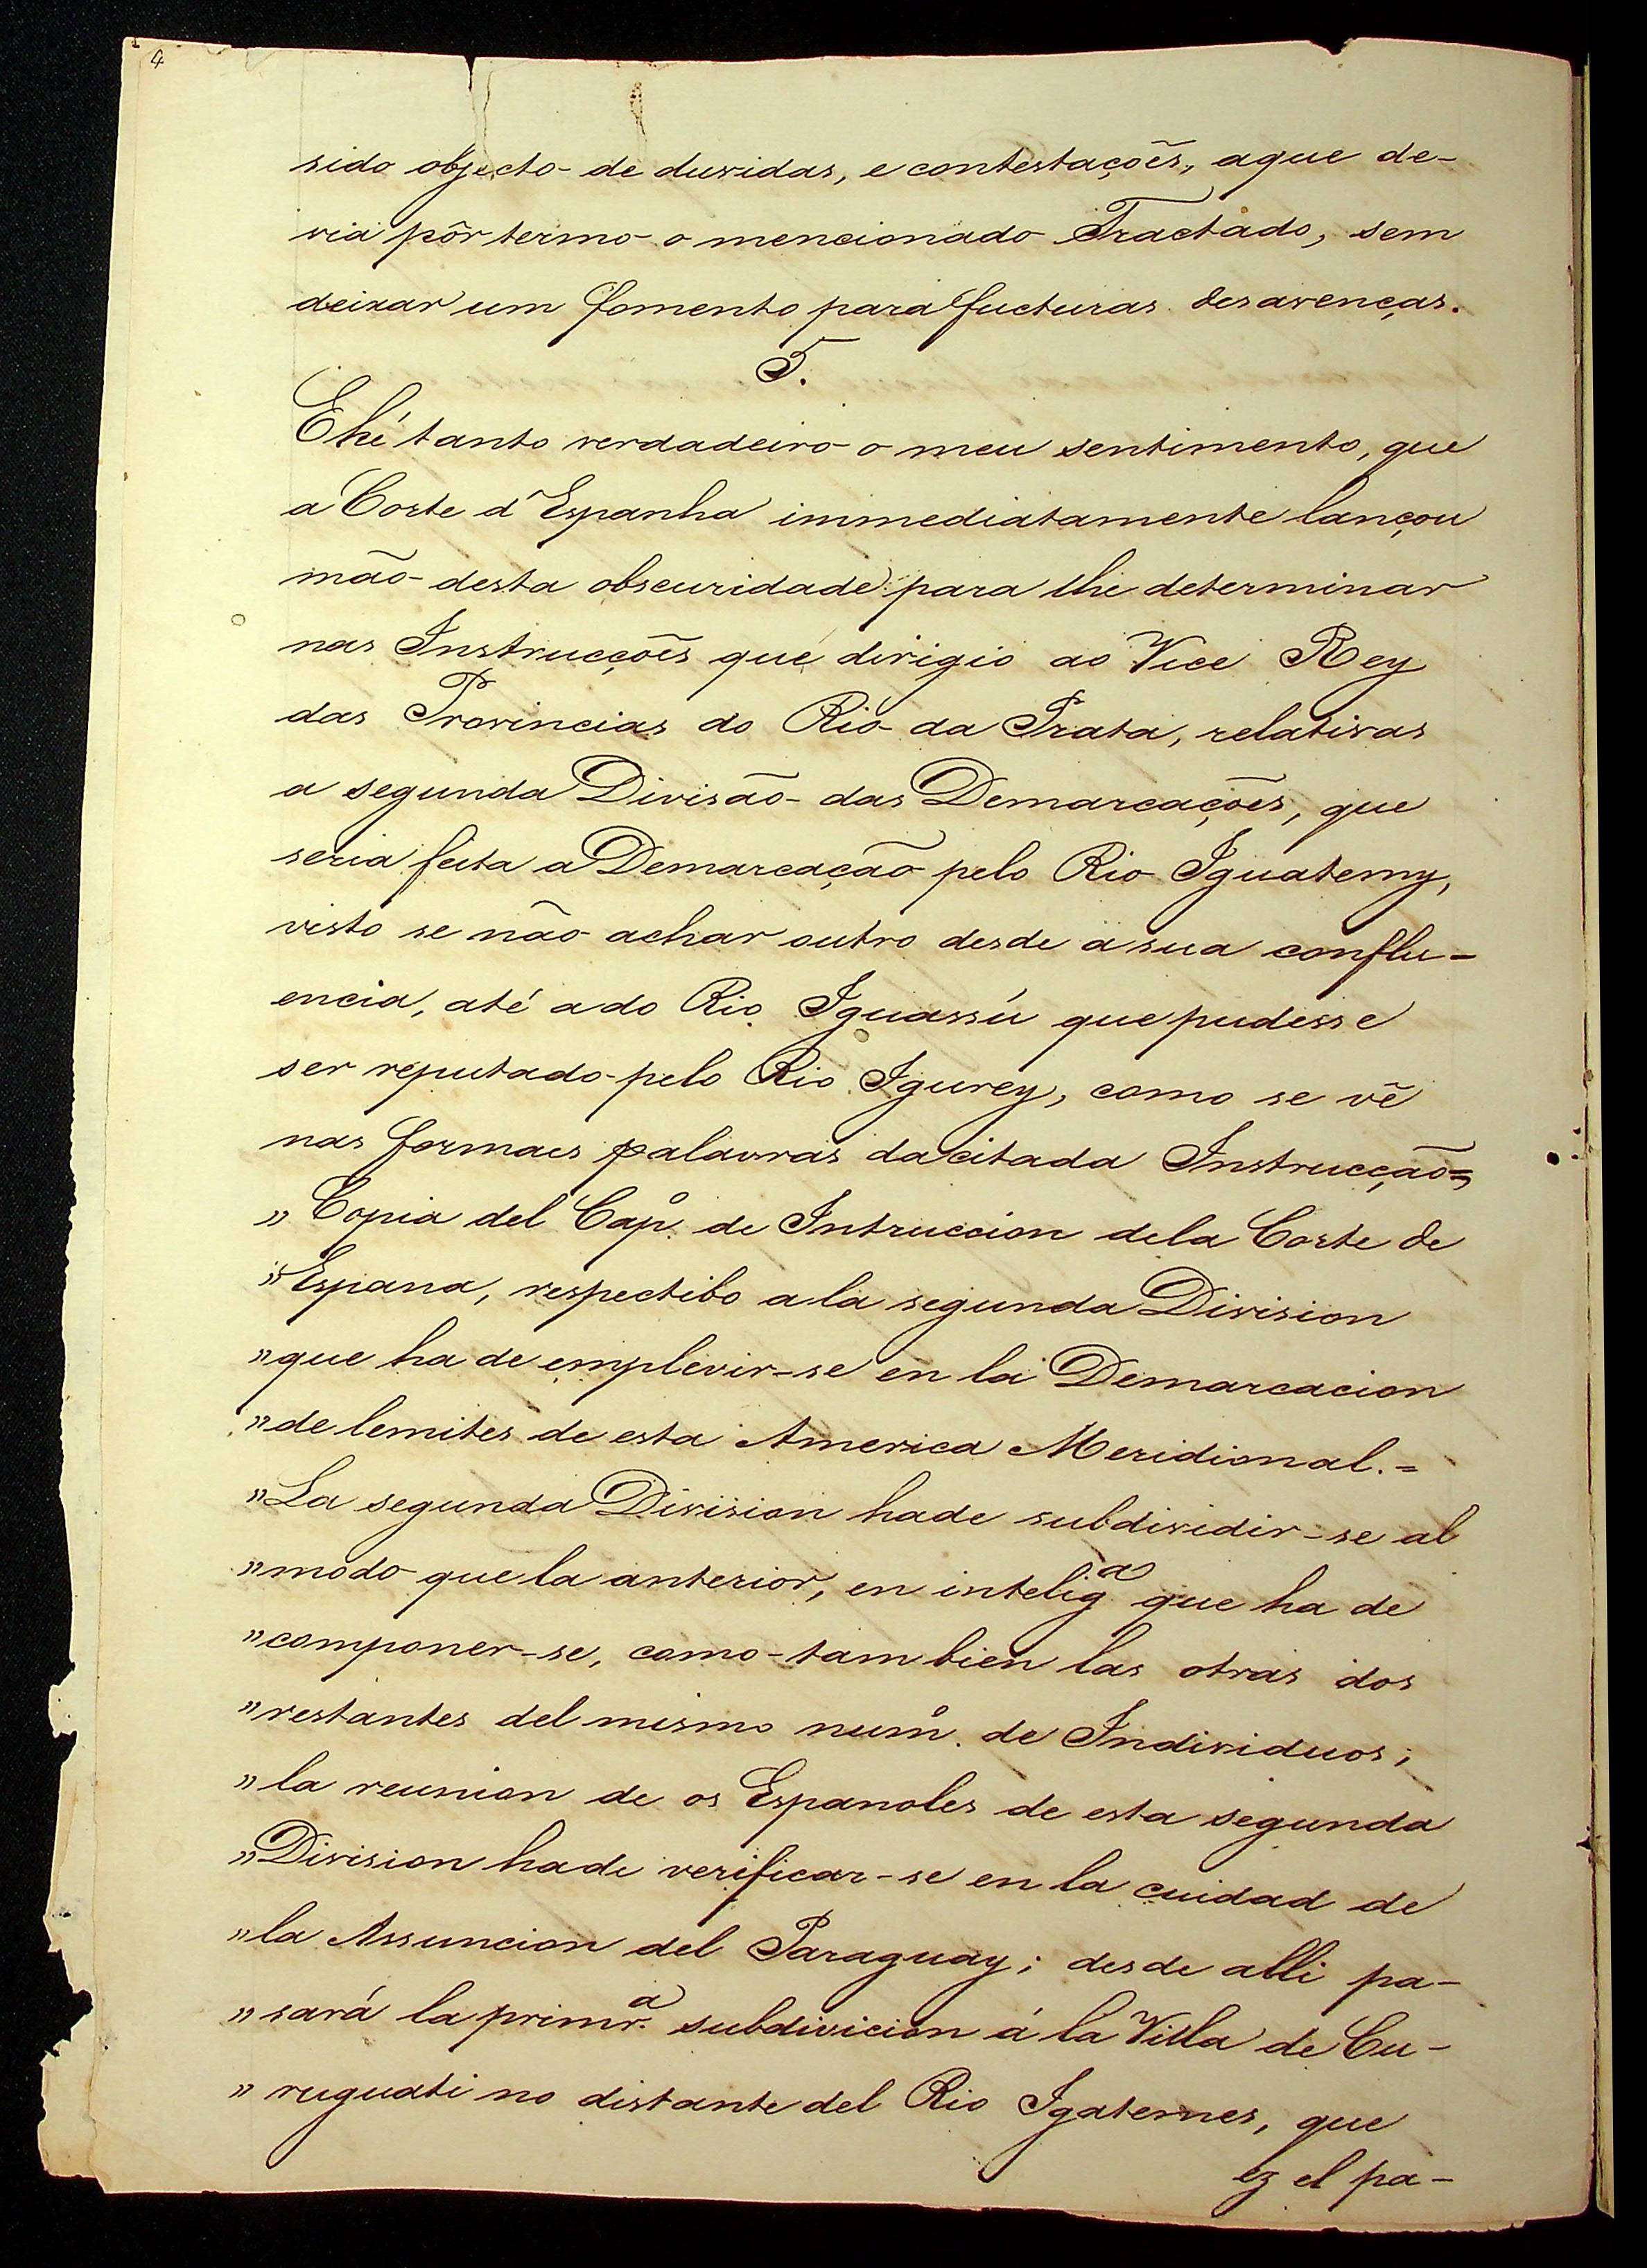 4
sido objecto de duvidas, e contestações, aque de-
via pôr termo o mencionado Tractado, sem
deixar um fomento para fucturas desavenças.
5.
E hé tanto verdadeiro o meu sentimento, que
a Corte d'Espanha immediatamente lançou
mão desta obscuridade para lhe determinar
nas Instrucções que dirigio ao Vice Rey
das Provincias do Rio da Prata, relativas
a segunda Divisão das Demarcações, que
seria feita a Demarcação pelo Rio Iguatemy,
visto se não achar outro desde a sua conflu-
encia, até a do Rio Iguassú que pudesse
ser reputado pelo Rio Igurey, como se vê
nas formaes palavras da citada Instrucção=
" Copia del Capº. de Intruccion dela Corte de
" Espana, respectibo a la segunda Division
" que ha de emplevir-se en la Demarcacion
" de lemites de esta America Meridional.=
" La segunda Division hade subdividir-se al
" modo que la anterior, en intelig.ª que ha de
" componer-se, como tambien las otras dos
" restantes del mismo numº. de Individuos;
" la reunion de os Espanoles de esta segunda
" Division hade verificar-se en la cuidad de
" la Assuncion del Paraguay; desde alli pa-
" sará la primr.ª subdivicion á la Villa de Cu-
" ruguati no distante del Rio Igatemes, que
ez el pa-